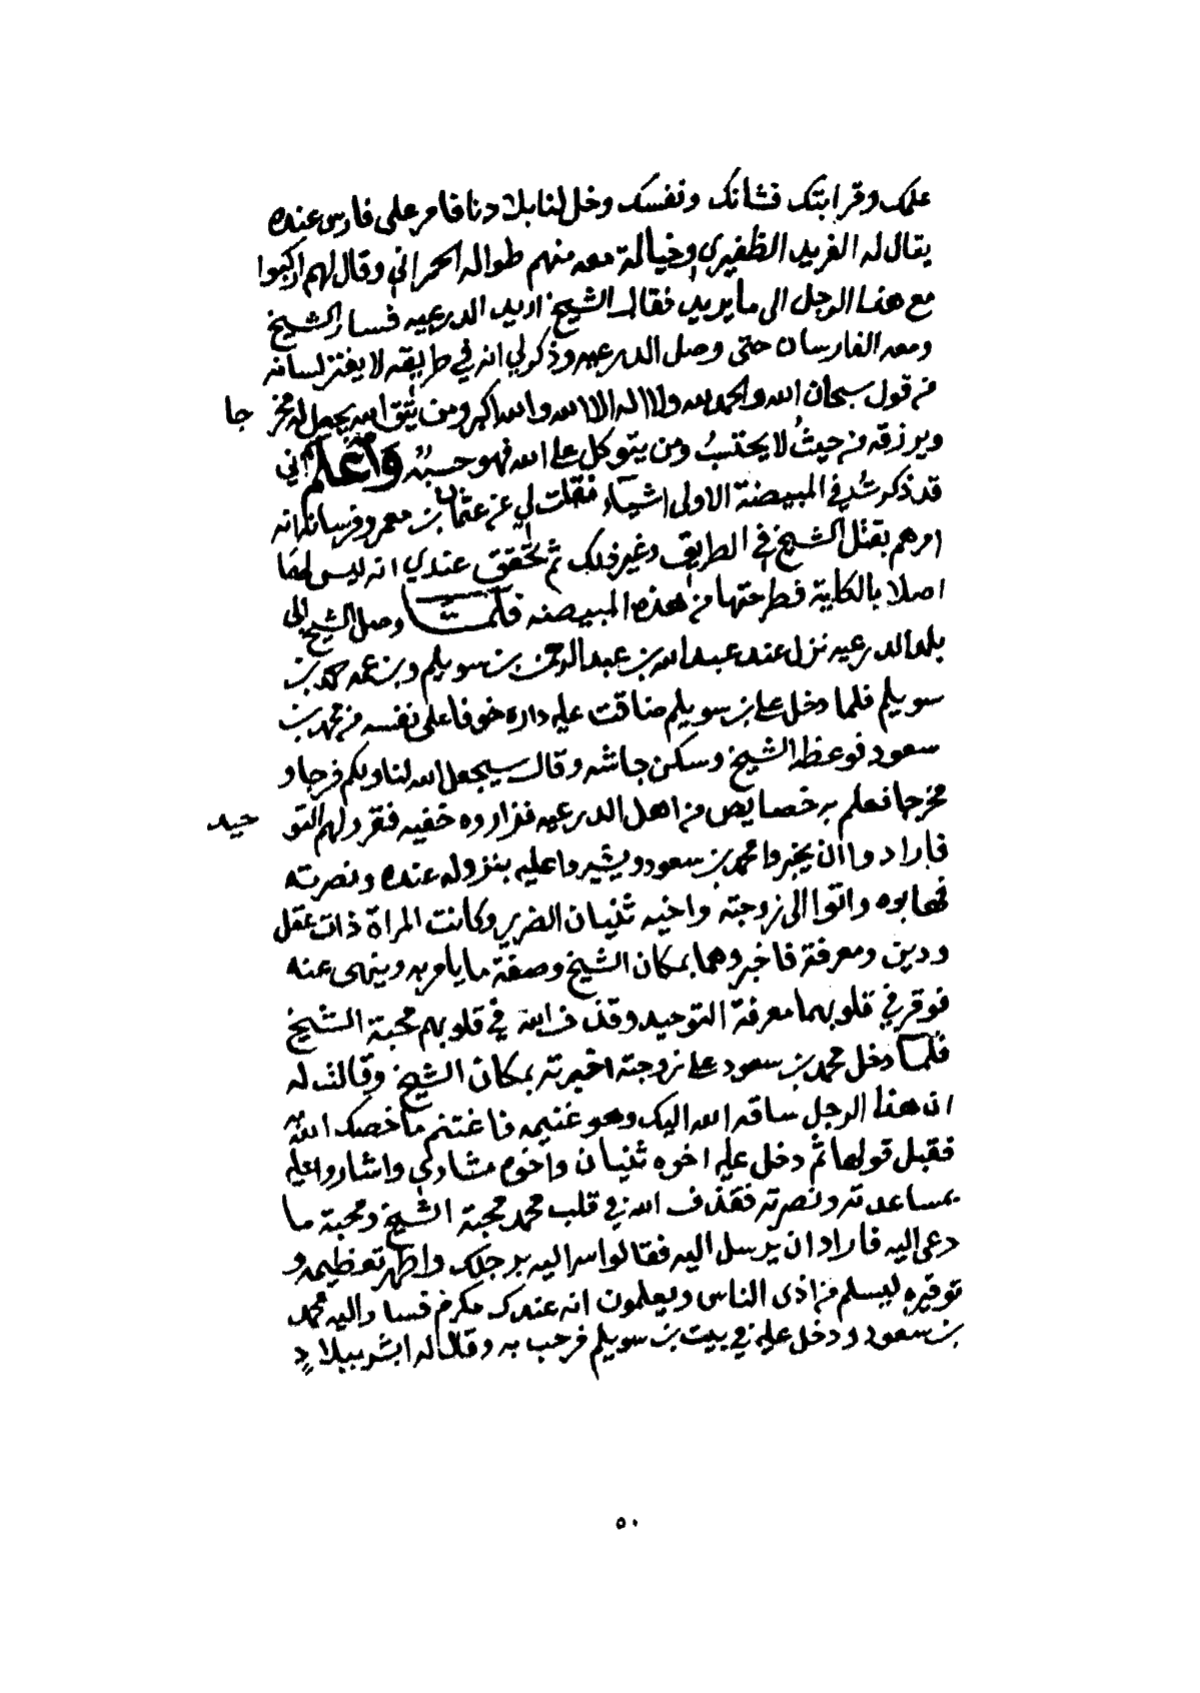 علمك وقرابتك فشانك ونفسك وخل لنا بلادنا فامر على فارس عنده
يقال له الفريد الظفيري وخيالة معه منهم طواله الحمراني وقال لهم اركبوا
مع هذا الرجل الى ما يريد فقال الشيخ اريد الدرعيه فسار الشيخ
ومعه الفارسان حتى وصل الدرعيه وذكر لي انه في طريقه لا يفتر لسانه
من قول سبحان الله والحمد لله ولا اله الا الله والله اكبر ومن يتق الله يجعل له مخرجا
ويرزقه من حيث لا يحتسب ومن يتوكل على الله فهو حسبه واعلم اني
قد ذكرت في المبيضة الاولى اشياء نقلت لي عن عثمان بن معمر وفرسانه انه
امرهم بقتل الشيخ في الطريق وغير ذلك ثم تحقق عندي انه ليس لها
اصلا بالكلية فطرحتها من هذه المبيضه فلما وصل الشيخ الى
بلد الدرعيه نزل عند عبد الله بن عبد الرحمن بن سويلم وبن عمه حمد بن
سويلم فلما دخل على بن سويلم ضاقت عليه داره خوفا على نفسه من محمد بن
سعود فوعظه الشيخ وسكن جاشه وقال سيجعل الله لنا ولكم فرجا و
مخرجا فعلم به خصايص من اهل الدرعيه فزاروه خفيه فقرر لهم التوحيد
فارادوا ان يخبروا محمد بن سعود ويشيروا عليه بنزوله عنده ونصرته
فهابوه واتوا الى زوجته واخيه ثنيان الضرير وكانت المراة ذات عقل
ودين ومعرفة فاخبروهما بمكان الشيخ وصفة ما يامر به وينهى عنه
فوقر في قلوبهما معرفة التوحيد وقذف الله في قلوبهم محبة الشيخ
فلما دخل محمد بن سعود على زوجته اخبرته بمكان الشيخ وقالت له
ان هذا الرجل ساقه الله اليك وهو غنيمه فاغتنم ما خصك الله به
فقبل قولها ثم دخل عليه اخوه ثنيان واخوه مشاري واشاروا عليه
بمساعدته ونصرته فقذف الله في قلب محمد محبة الشيخ ومحبة ما
دعى اليه فاراد ان يرسل اليه فقالوا سر اليه برجلك واظهر تعظيمه و
توقيره ليسلم من اذى الناس ويعلمون انه عندك مكرم فسار اليه محمد
بن سعود ودخل عليه في بيت بن سويلم فرحب به وقال له ابشر ببلاد
٥٠